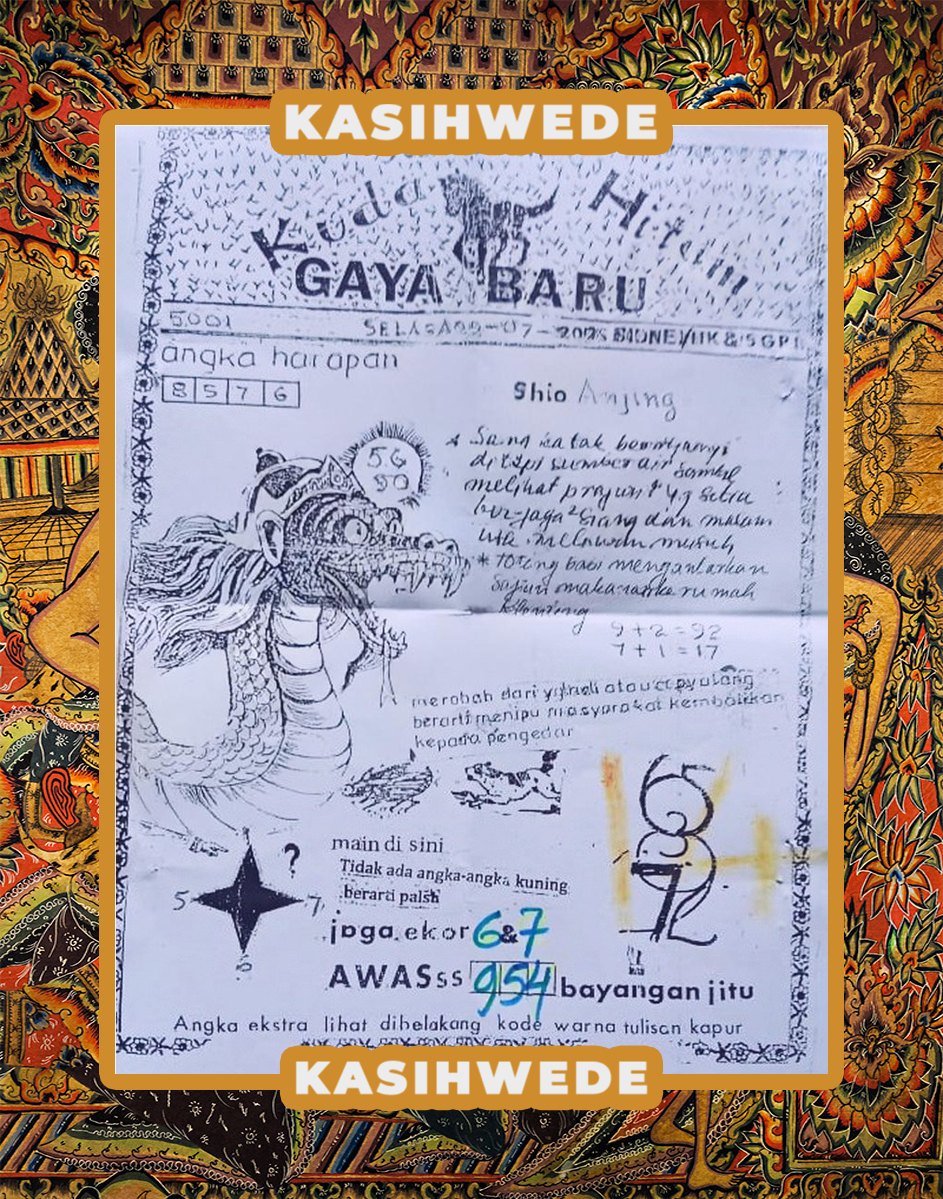 KASIHWEDE
Kuda Hitam
GAYA BARU
5001
SELASA 2025 SIDNEY/HK & SGP
angka harapan
8 5 7 6
Shio Anjing
56
50
* Sang katak bernyanyi
ditepi sumber air sambil
melihat prajurit yg setia
ber-jaga² siang dan malam
utk melawan musuh
* Toteng babi mengantarkan
sajian makanan ke rumah
9 + 2 = 92
7 + 1 = 17
merobah dari yg asli atau copy ulang
berarti menipu masyarakat kembalikan
kepada pengedar
main di sini
Tidak ada angka-angka kuning
berarti palsu
?
5
7
jaga ekor 6&7
AWASss 954 bayangan jitu
Angka ekstra lihat dibelakang kode warna tulisan kapur
KASIHWEDE